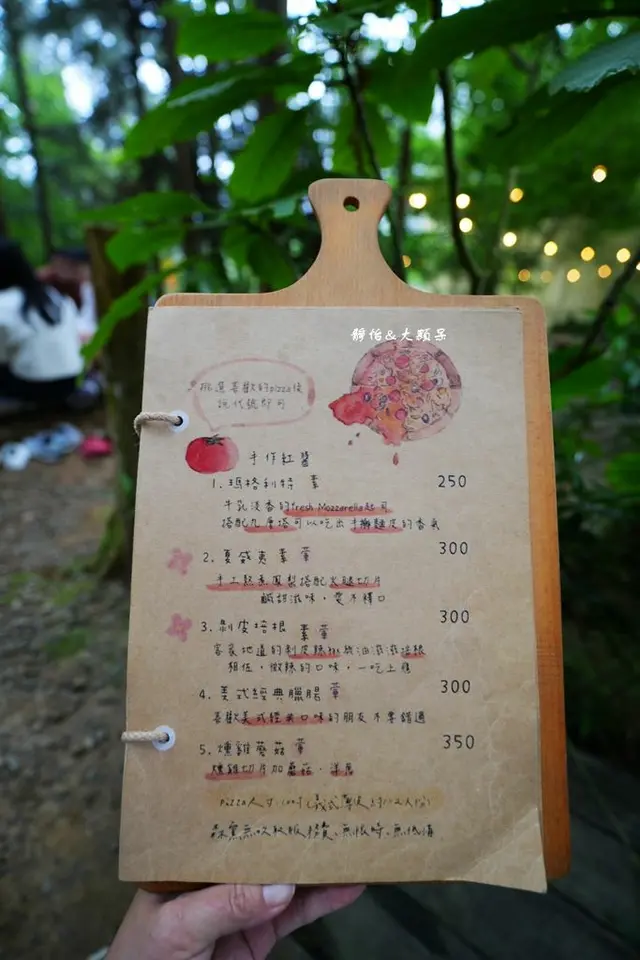 靜怡&大顆呆
挑選喜歡的pizza後
說代號即可
手作紅醬
1. 瑪格利特 素 250
牛乳淡香的fresh Mozzarella起司
搭配九層塔可以吃出手擀麵皮的香氣
2. 夏威夷 素 葷 300
手工熬煮鳳梨搭配火腿切片
鹹甜滋味,愛不釋口
3. 剝皮培根 素 葷 300
客家地道的剝皮辣椒與油滋滋培根
相佐,微辣的口味,一吃上癮
4. 美式經典臘腸 葷 300
喜歡美式經典口味的朋友不要錯過
5. 燻雞蘑菇 葷 350
燻雞切片加蘑菇、洋蔥
pizza尺寸:10吋(義式薄皮
無限時、無低消